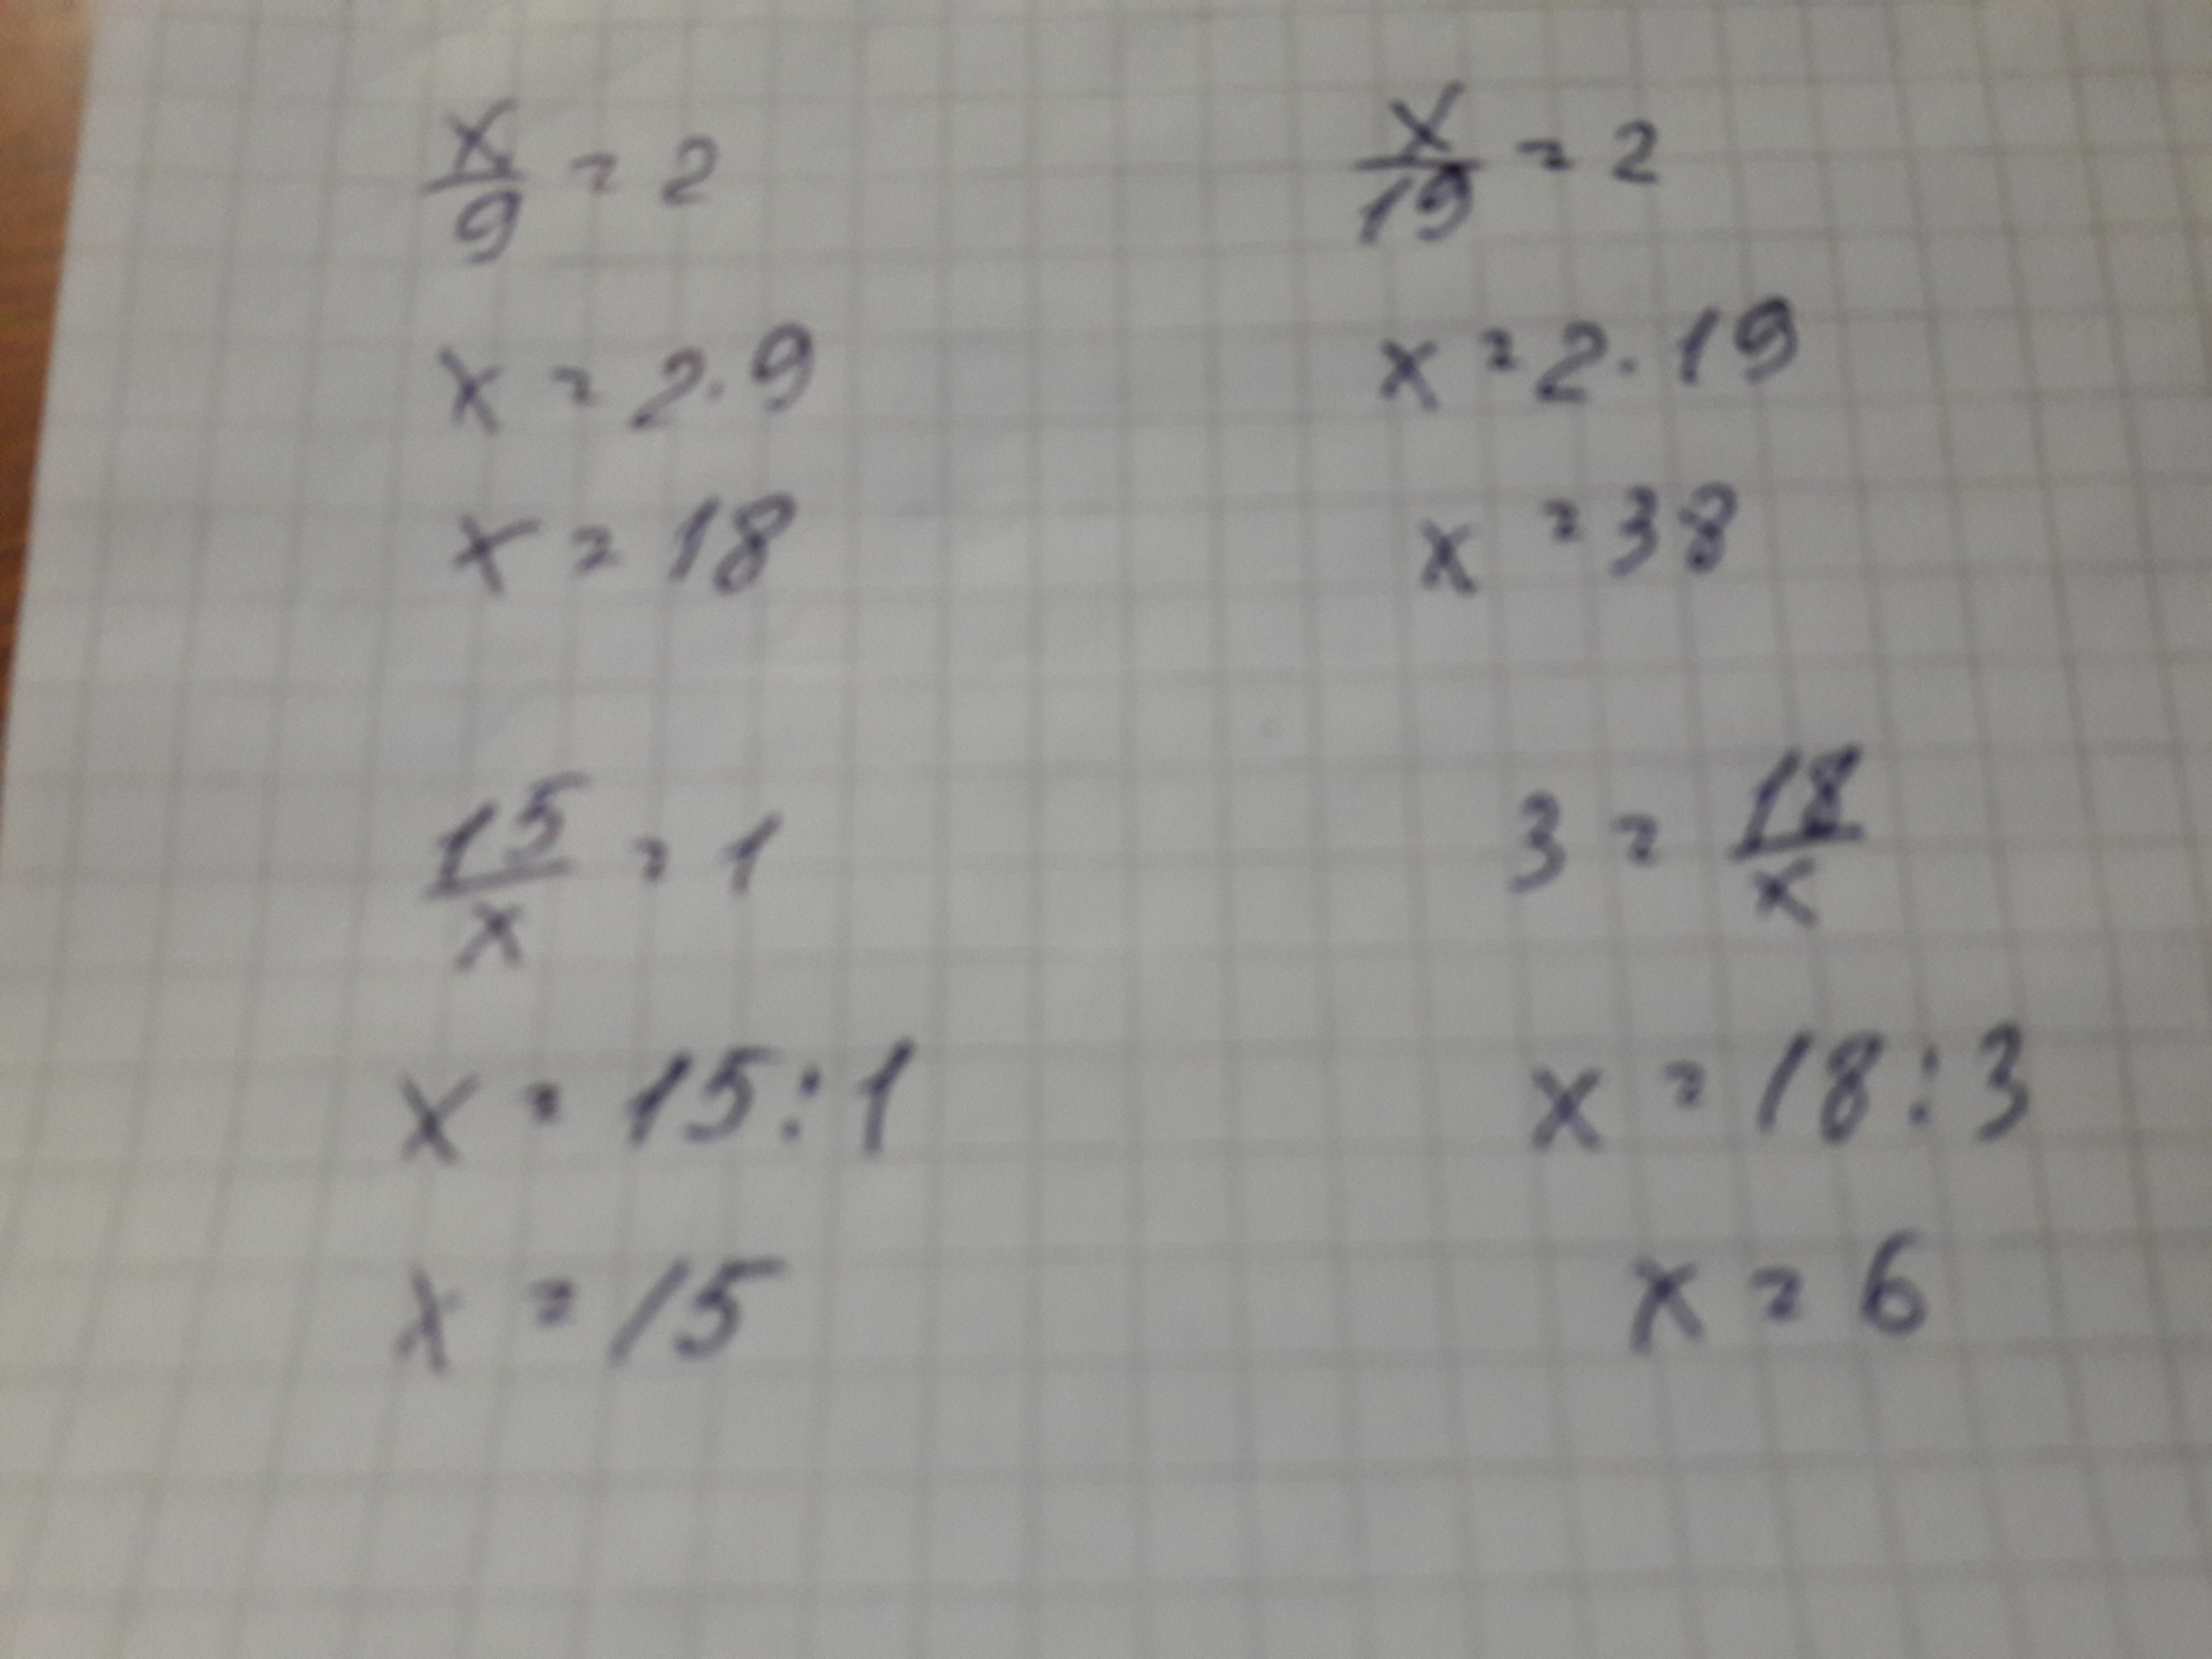 x/9 = 2
x = 2·9
x = 18
x/19 = 2
x = 2·19
x = 38
15/x = 1
x = 15:1
x = 15
3 = 18/x
x = 18:3
x = 6